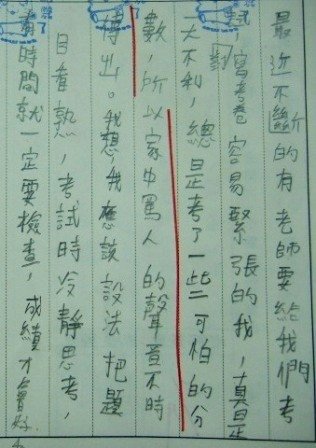 最近不斷的有老師要給我們考
試,寫考卷容易緊張的我,真是
大不利,總是考了一些可怕的分
數,所以家中罵人的聲音不時
傳出。我想,我應該設法把題
目看熟,考試時冷靜思考,
有時間就一定要檢查,成績才會好